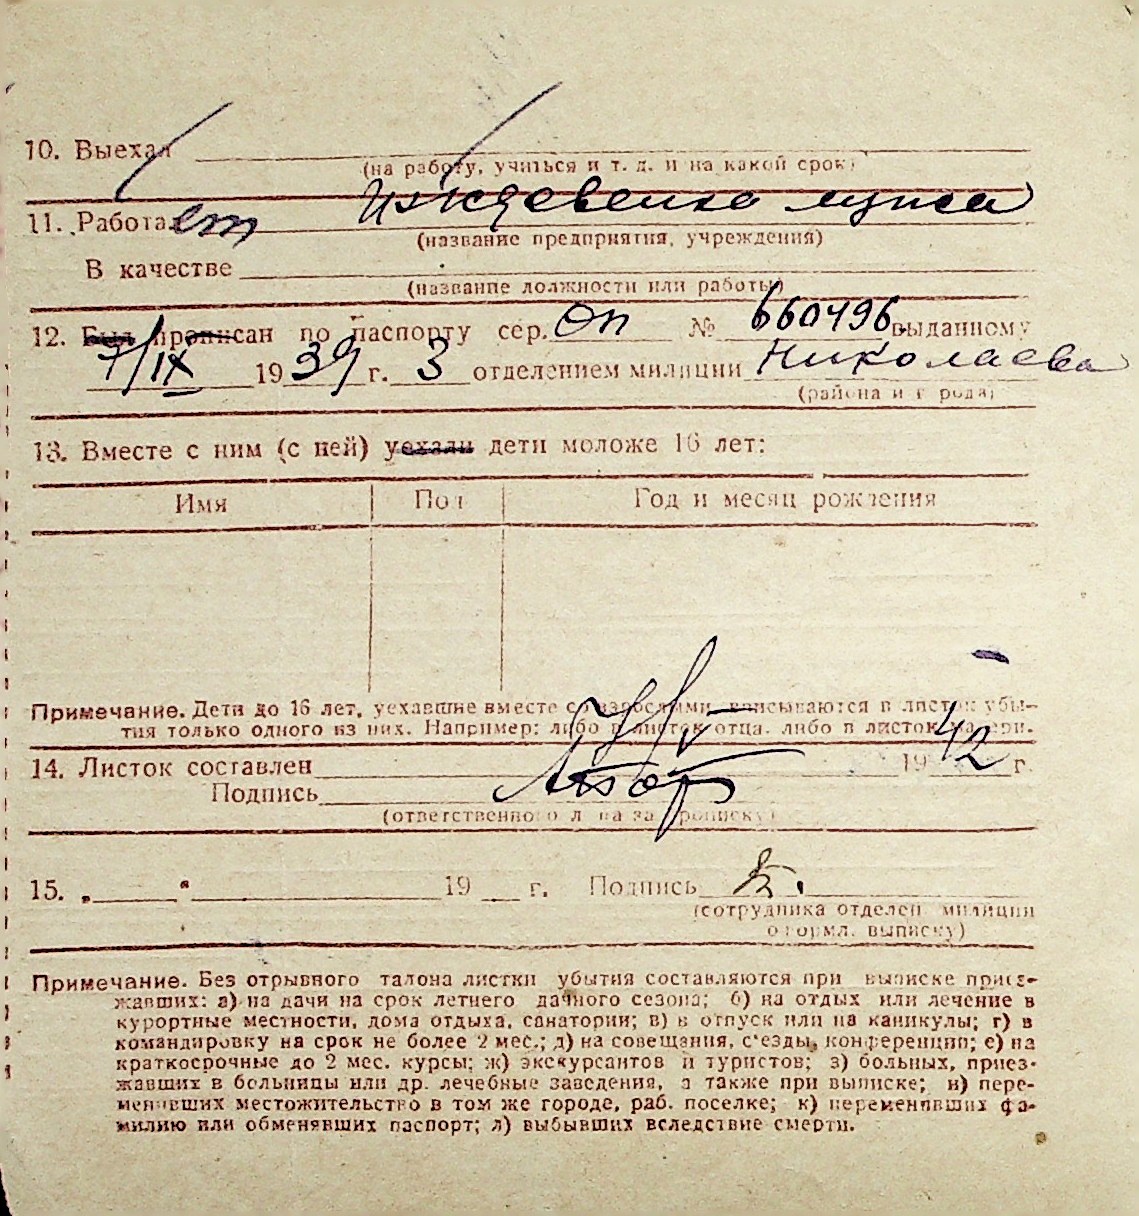 10. Выехал
(на работу, учиться и т. д. и на какой срок)
11. Работает иждевенка мужа
(название предприятия, учреждения)
В качестве
(название должности или работы)
12. Был прописан по паспорту сер. ОП № 660496 выданному
7/IX 1939 г. 3 отделением милиции Николаева
(района и города)
13. Вместе с ним (с ней) уехали дети моложе 16 лет:
Имя Пол Год и месяц рождения
Примечание. Дети до 16 лет, уехавшие вместе со взрослыми, вписываются в листок убы-
тия только одного из них. Например: либо в листок отца, либо в листок матери.
14. Листок составлен 7/V 1942 г.
Подпись
(ответственного лица за прописку)
15. „ " 19 г. Подпись
(сотрудника отделен. милиции
оформл. выписку)
Примечание. Без отрывного талона листки убытия составляются при выписке приез-
жавших: а) на дачи на срок летнего дачного сезона; б) на отдых или лечение в
курортные местности, дома отдыха, санатории; в) в отпуск или на каникулы; г) в
командировку на срок не более 2 мес.; д) на совещания, с'езды, конференции; е) на
краткосрочные до 2 мес. курсы; ж) экскурсантов и туристов; з) больных, приез-
жавших в больницы или др. лечебные заведения, а также при выписке; и) пере-
менивших местожительство в том же городе, раб. поселке; к) переменивших фа-
милию или обменявших паспорт; л) выбывших вследствие смерти.